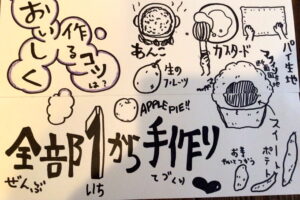 おいしく
作る
コツ
は?
あんこ
カスタード
パイ生地
生の
フルーツ
APPLE PIE!!
スイート
ポテト
全部1から手作り
ぜんぶ
いち
てづくり